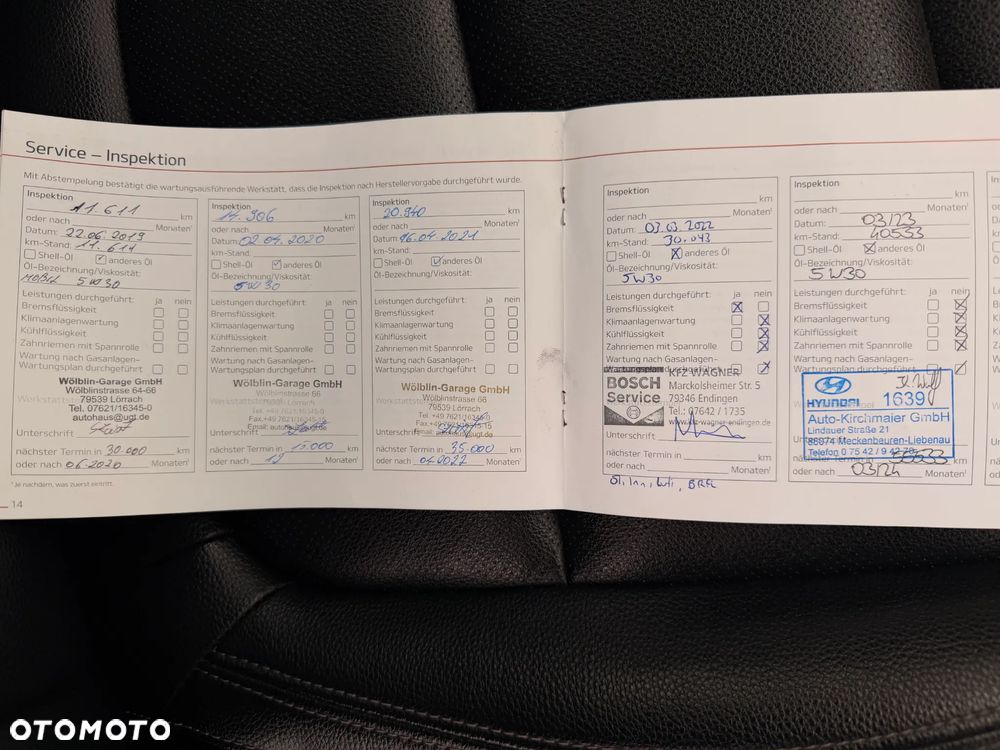 Service – Inspektion
Mit Abstempelung bestätigt die wartungsausführende Werkstatt, dass die Inspektion nach Herstellervorgabe durchgeführt wurde.
Inspektion
11.611 km
oder nach Monaten¹
Datum: 22.06.2019
km-Stand: 11.611
Shell-Öl anderes Öl
Öl-Bezeichnung/Viskosität:
MOBIL 5W30
Leistungen durchgeführt: ja nein
Bremsflüssigkeit
Klimaanlagenwartung
Kühlflüssigkeit
Zahnriemen mit Spannrolle
Wartung nach Gasanlagen-
Wartungsplan durchgeführt:
Wölblin-Garage GmbH
Wölblinstrasse 64-66
79539 Lörrach
Tel. 07621/16345-0
autohaus@ugt.de
Unterschrift
nächster Termin in 30.000 km
oder nach 06.2020 Monaten¹
Inspektion
14.906 km
oder nach Monaten¹
Datum: 02.04.2020
km-Stand:
Shell-Öl anderes Öl
Öl-Bezeichnung/Viskosität:
5W30
Leistungen durchgeführt: ja nein
Bremsflüssigkeit
Klimaanlagenwartung
Kühlflüssigkeit
Zahnriemen mit Spannrolle
Wartung nach Gasanlagen-
Wartungsplan durchgeführt:
Wölblin-Garage GmbH
Wölblinstrasse 66
79539 Lörrach
Unterschrift
nächster Termin in 15.000 km
oder nach 12 Monaten¹
Inspektion
20.940 km
oder nach Monaten¹
Datum: 16.04.2021
km-Stand:
Shell-Öl anderes Öl
Öl-Bezeichnung/Viskosität:
Leistungen durchgeführt: ja nein
Bremsflüssigkeit
Klimaanlagenwartung
Kühlflüssigkeit
Zahnriemen mit Spannrolle
Wartung nach Gasanlagen-
Wartungsplan durchgeführt:
Wölblin-Garage GmbH
Wölblinstrasse 66
79539 Lörrach
Unterschrift
nächster Termin in 35.000 km
oder nach 04.2022 Monaten¹
¹ Je nachdem, was zuerst eintritt.
14
Inspektion
km
oder nach Monaten¹
Datum: 07.03.2022
km-Stand: 30.043
Shell-Öl anderes Öl
Öl-Bezeichnung/Viskosität:
5W30
Leistungen durchgeführt: ja nein
Bremsflüssigkeit
Klimaanlagenwartung
Kühlflüssigkeit
Zahnriemen mit Spannrolle
Wartung nach Gasanlagen-
Wartungsplan durchgeführt:
BOSCH
Service
KFZ-WAGNER
Marckolsheimer Str. 5
79346 Endingen
Tel.: 07642 / 1735
www.kfz-wagner-endingen.de
Unterschrift
nächster Termin in km
oder nach Monaten¹
Inspektion
km
oder nach Monaten¹
Datum: 03/23
km-Stand: 40533
Shell-Öl anderes Öl
Öl-Bezeichnung/Viskosität:
5W30
Leistungen durchgeführt: ja nein
Bremsflüssigkeit
Klimaanlagenwartung
Kühlflüssigkeit
Zahnriemen mit Spannrolle
Wartung nach Gasanlagen-
HYUNDAI 1639
Auto-Kirchmaier GmbH
Lindauer Straße 21
88074 Meckenbeuren-Liebenau
nächster Termin in km
oder nach 03/24 Monaten¹
OTOMOTO